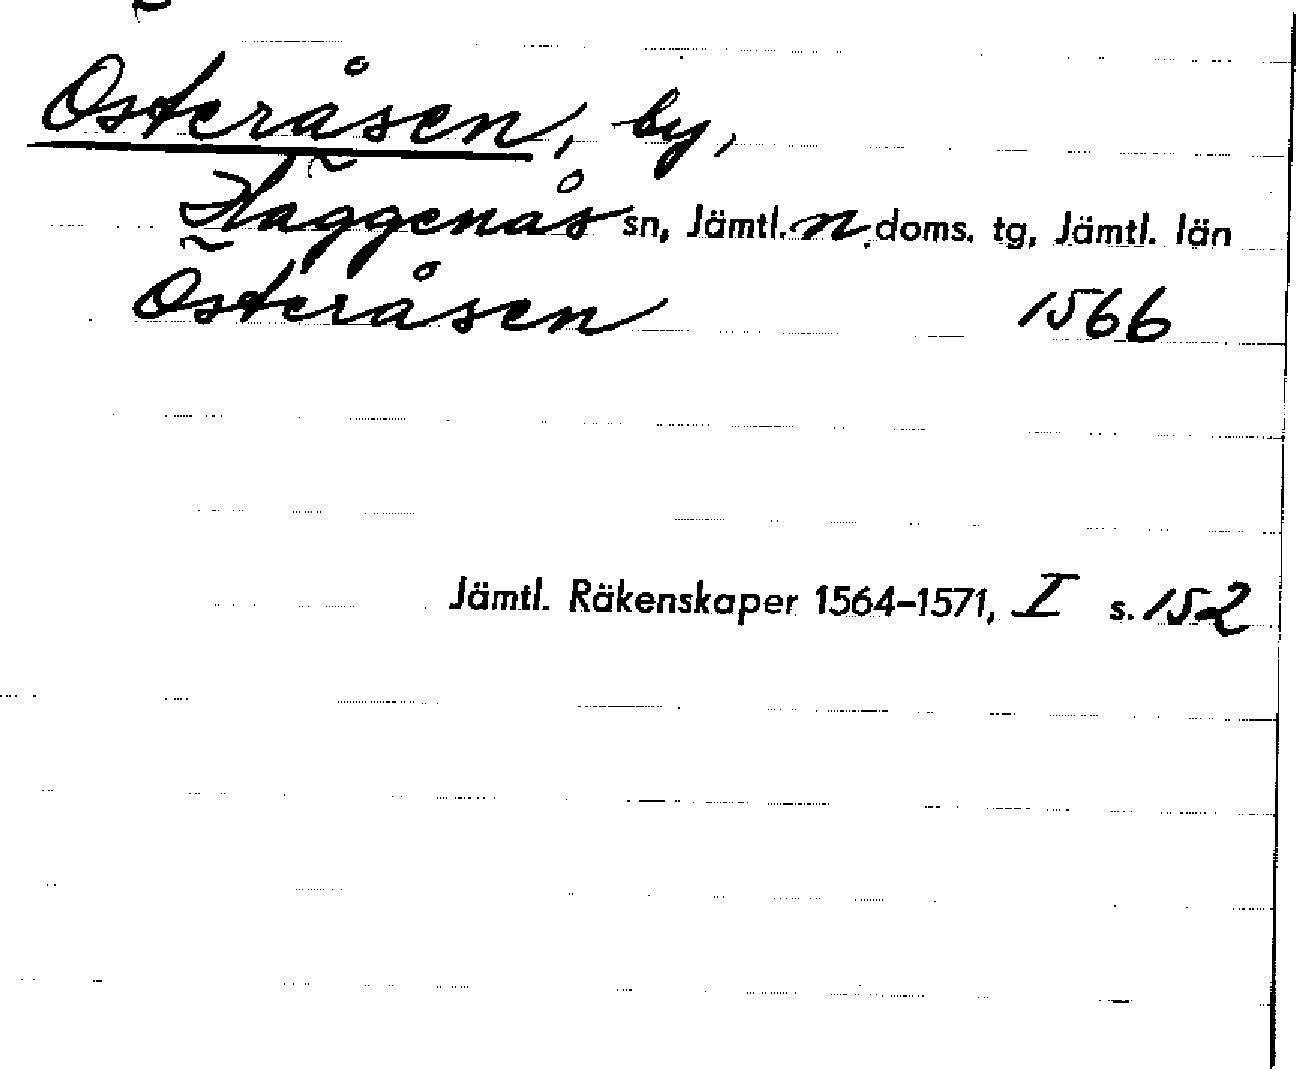 Österåsen, by,
Häggenås sn, Jämtl. n. doms. tg, Jämtl. län
Österåsen 1566
Jämtl. Räkenskaper 1564–1571, I s. 152